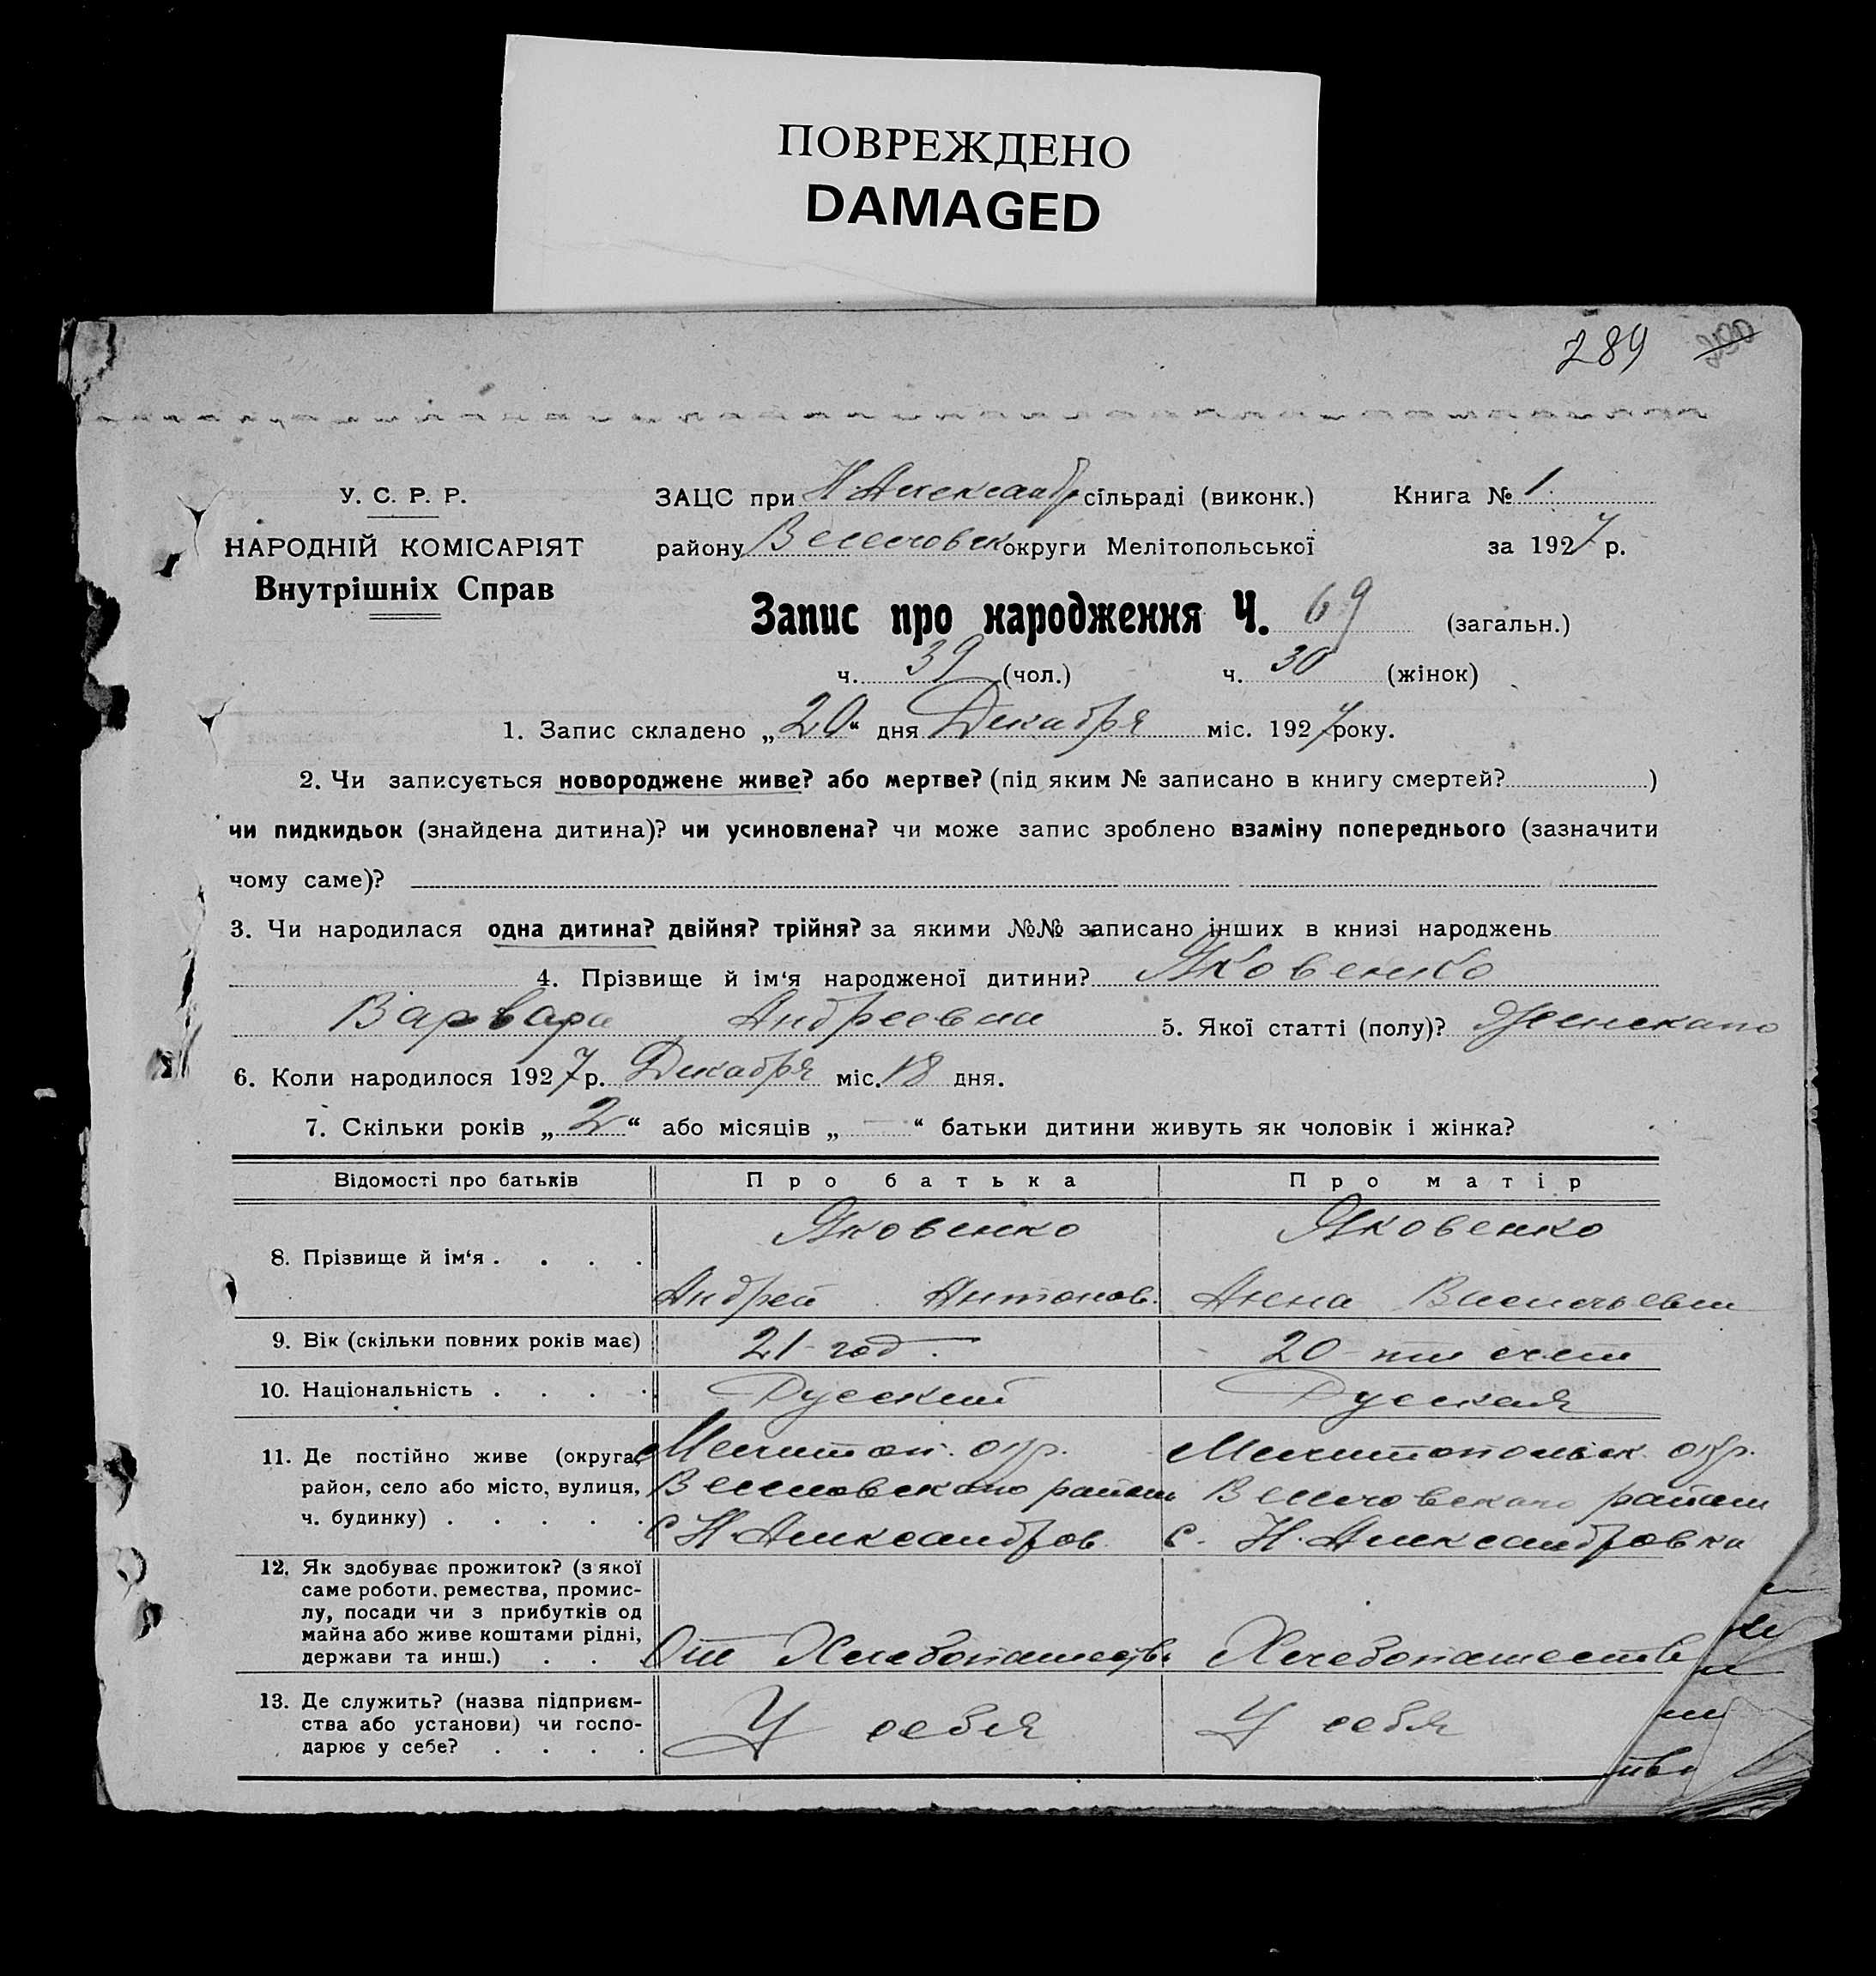 ПОВРЕЖДЕНО
DAMAGED
289 290
У. С. Р. Р.
НАРОДНІЙ КОМІСАРІЯТ
Внутрішніх Справ
ЗАЦС при Н-Александр сільраді (виконк.) Книга № 1
району Веселовск округи Мелітопольської за 1927 р.
Запис про народження Ч. 69 (загальн.)
ч. 39 (чол.) ч. 30 (жінок)
1. Запис складено „20“ дня Декабря міс. 1927 року.
2. Чи записується новороджене живе? або мертве? (під яким № записано в книгу смертей? )
чи пидкидьок (знайдена дитина)? чи усиновлена? чи може запис зроблено взаміну попереднього (зазначити
чому саме)?
3. Чи народилася одна дитина? двійня? трійня? за якими №№ записано інших в книзі народжень
4. Прізвище й ім‘я народженої дитини? Яковенко
Варвара Андреевна 5. Якої статті (полу)? Женскаго
6. Коли народилося 1927 р. Декабря міс. 18 дня.
7. Скільки років „2“ або місяців „—“ батьки дитини живуть як чоловік і жінка?
Відомості про батьків Про батька Про матір
8. Прізвище й ім‘я . . . . Яковенко Яковенко
Андрей Антонов. Анна
9. Вік (скільки повних років має) 21 год. 20-ти лет
10. Національність . . . . Русский Русская
11. Де постійно живе (округа, Мелитоп. окр. Мелитопольск. окр.
район, село або місто, вулиця, Веселовскаго района Веселовскаго района
ч. будинку) . . . . . с Н-Александров. с. Н-Александровка
12. Як здобуває прожиток? (з якої
саме роботи, ремества, промис-
лу, посади чи з прибутків од
майна або живе коштами рідні,
держави та инш.) . . . От Хлебопашеств. Хлебопашеств
13. Де служить? (назва підприєм-
ства або установи) чи госпо- У себя У себя
дарює у себе? . . . .